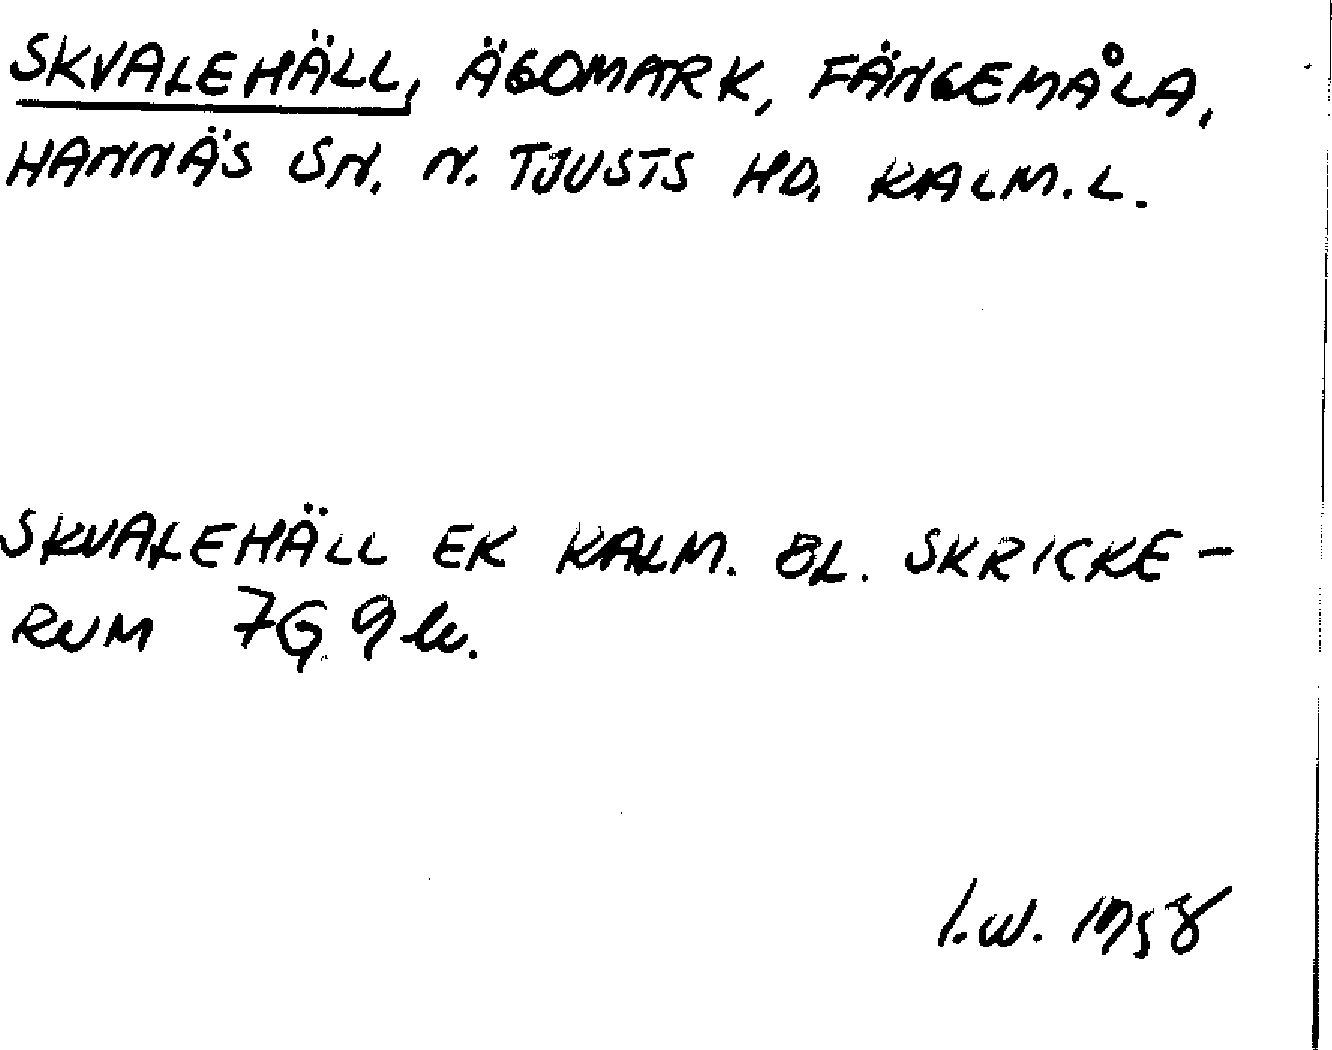 SKVALEHÄLL, ÄGOMARK, FÄNGEMÅLA,
HANNÄS SN. N. TJUSTS HD. KALM. L.
SKVALEHÄLL EK KALM. BL. SKRICKE-
RUM 7G 9
I.W. 1958